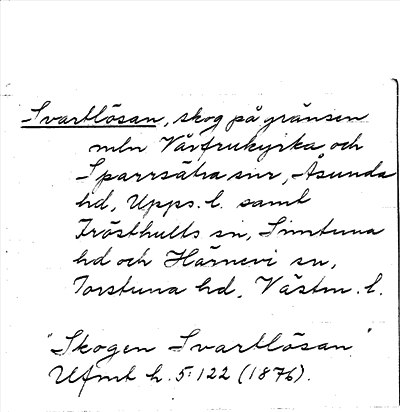 Svartlösan, skog på gränsen
mln Vårfrukyrka och
Sparrsätra snr, Åsunda
hd, Upps. l. samt
Frösthults sn, Simtuna
hd och Härnevi sn,
Torstuna hd, Västm. l.
"Skogen Svartlösan"
Ufmt h. 5:122 (1876).